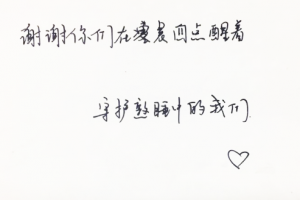 谢谢你们在凌晨四点醒着
守护熟睡中的我们